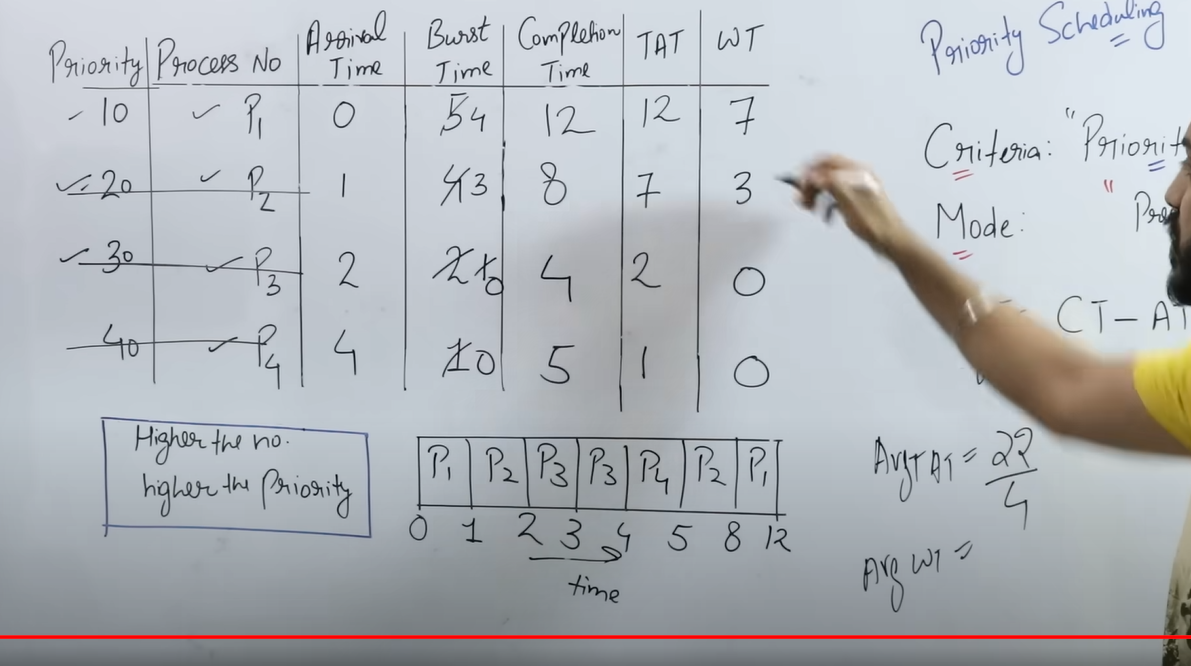 Priority Process No Arrival Time Burst Time Completion Time TAT WT
10 P1 0 5 4 12 12 7
20 P2 1 4 3 8 7 3
30 P3 2 2 1 0 4 2 0
40 P4 4 1 0 5 1 0
Higher the no.
higher the Priority
P1 P2 P3 P3 P4 P2 P1
0 1 2 3 4 5 8 12
time
Priority Scheduling
Criteria: "Priorit
Mode: "
CT-AT
Avg TAT = 22/4
Avg WT =